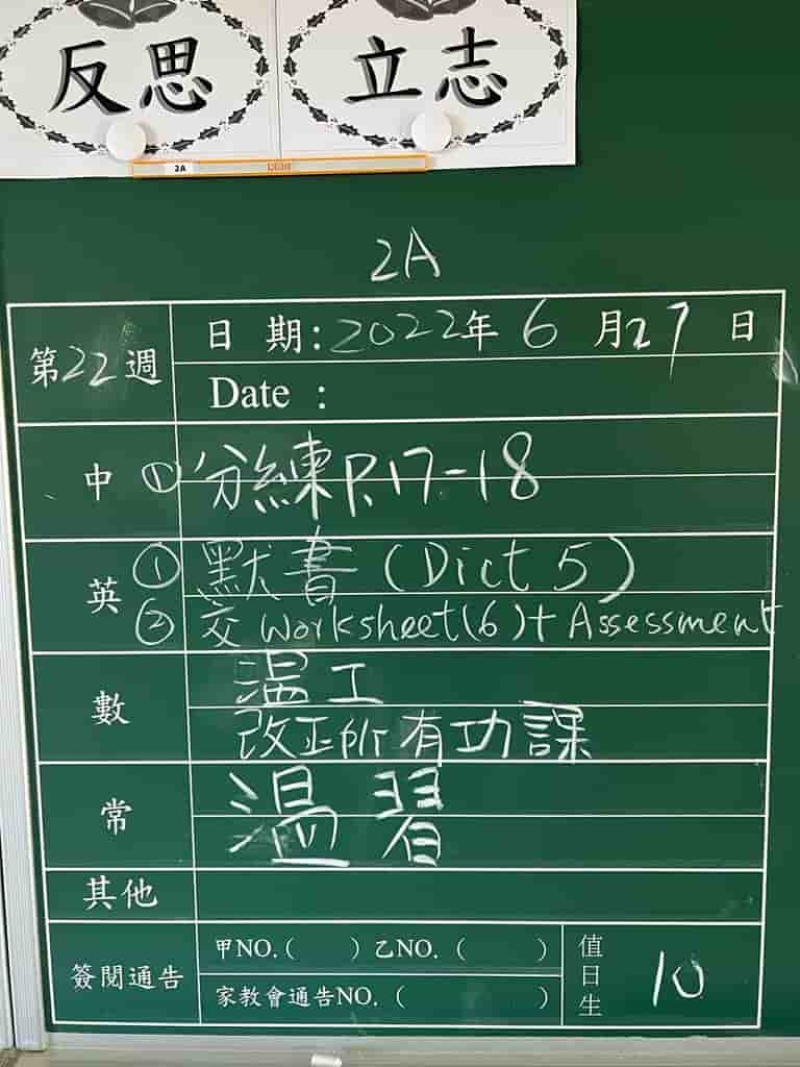 反思 立志
2A
2A
第22週 日 期:2022年 6 月27 日
Date :
中 ① 分練P.17-18
英 ① 默書 (Dict 5)
② 交 Worksheet(6)+ Assessment
數 溫工
改正所有功課
常 溫習
其他
簽閱通告 甲NO.( ) 乙NO. ( ) 值日生 10
家教會通告NO. ( )